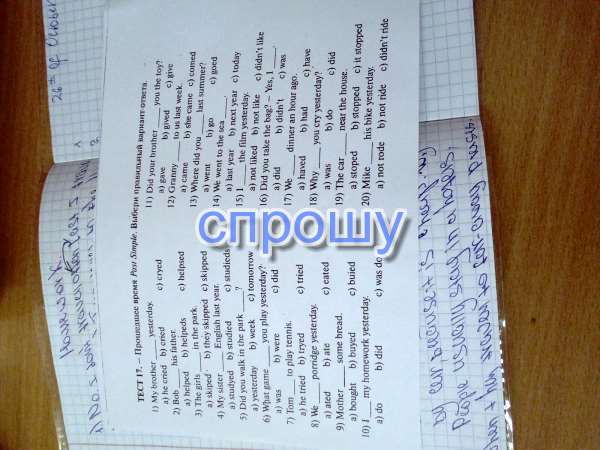 ТЕСТ 17. – Прошедшее время Past Simple. Выбери правильный вариант ответа.
1) My brother ____ yesterday.
a) he cried b) cried c) cryed
2) Bob ____ his father.
a) helped b) helpeds c) helpsed
3) The girls ____ in the park.
a) skiped b) they skipped c) skipped
4) My sister ____ English last year.
a) studyed b) studied c) studieds
5) Did you walk in the park ____?
a) yesterday b) week c) tomorrow
6) What game ____ you play yesterday?
a) was b) were c) did
7) Tom ____ to play tennis.
a) he tried b) tryed c) tried
8) We ____ porridge yesterday.
a) ated b) ate c) eated
9) Mother ____ some bread.
a) bought b) buyed c) buied
10) I ____ my homework yesterday.
a) do b) did c) was do
11) Did your brother ____ you the toy?
a) gave b) gived c) give
12) Granny ____ to us last week.
a) came b) she came c) comed
13) Where did you ____ last summer?
a) went b) go c) goed
14) We went to the sea ____.
a) last year b) next year c) today
15) I ____ the film yesterday.
a) not liked b) not like c) didn't like
16) Did you take the bag? – Yes, I ____.
a) did b) didn't c) was
17) We ____ dinner an hour ago.
a) haved b) had c) have
18) Why ____ you cry yesterday?
a) was b) do c) did
19) The car ____ near the house.
a) stoped b) stopped c) it stopped
20) Mike ____ his bike yesterday.
a) not rode b) not ride c) didn't ride
спрошу
by car because it is cheap.
People usually stay in a hotel.